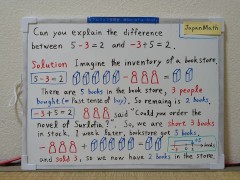 JapanMath
Can you explain the difference
between 5-3=2 and -3+5=2.
Solution Imagine the inventory of a bookstore.
5-3=2
There are 5 books in the book store, 3 people
bought (= Past tense of buy). So remaing is 2 books.
-3+5=2 said "Could you order the
novel of ". So, we are short 3 books
in stock. 1 week later, bookstore got 5 books,
and sold 3, so we now have 2 books in the store.